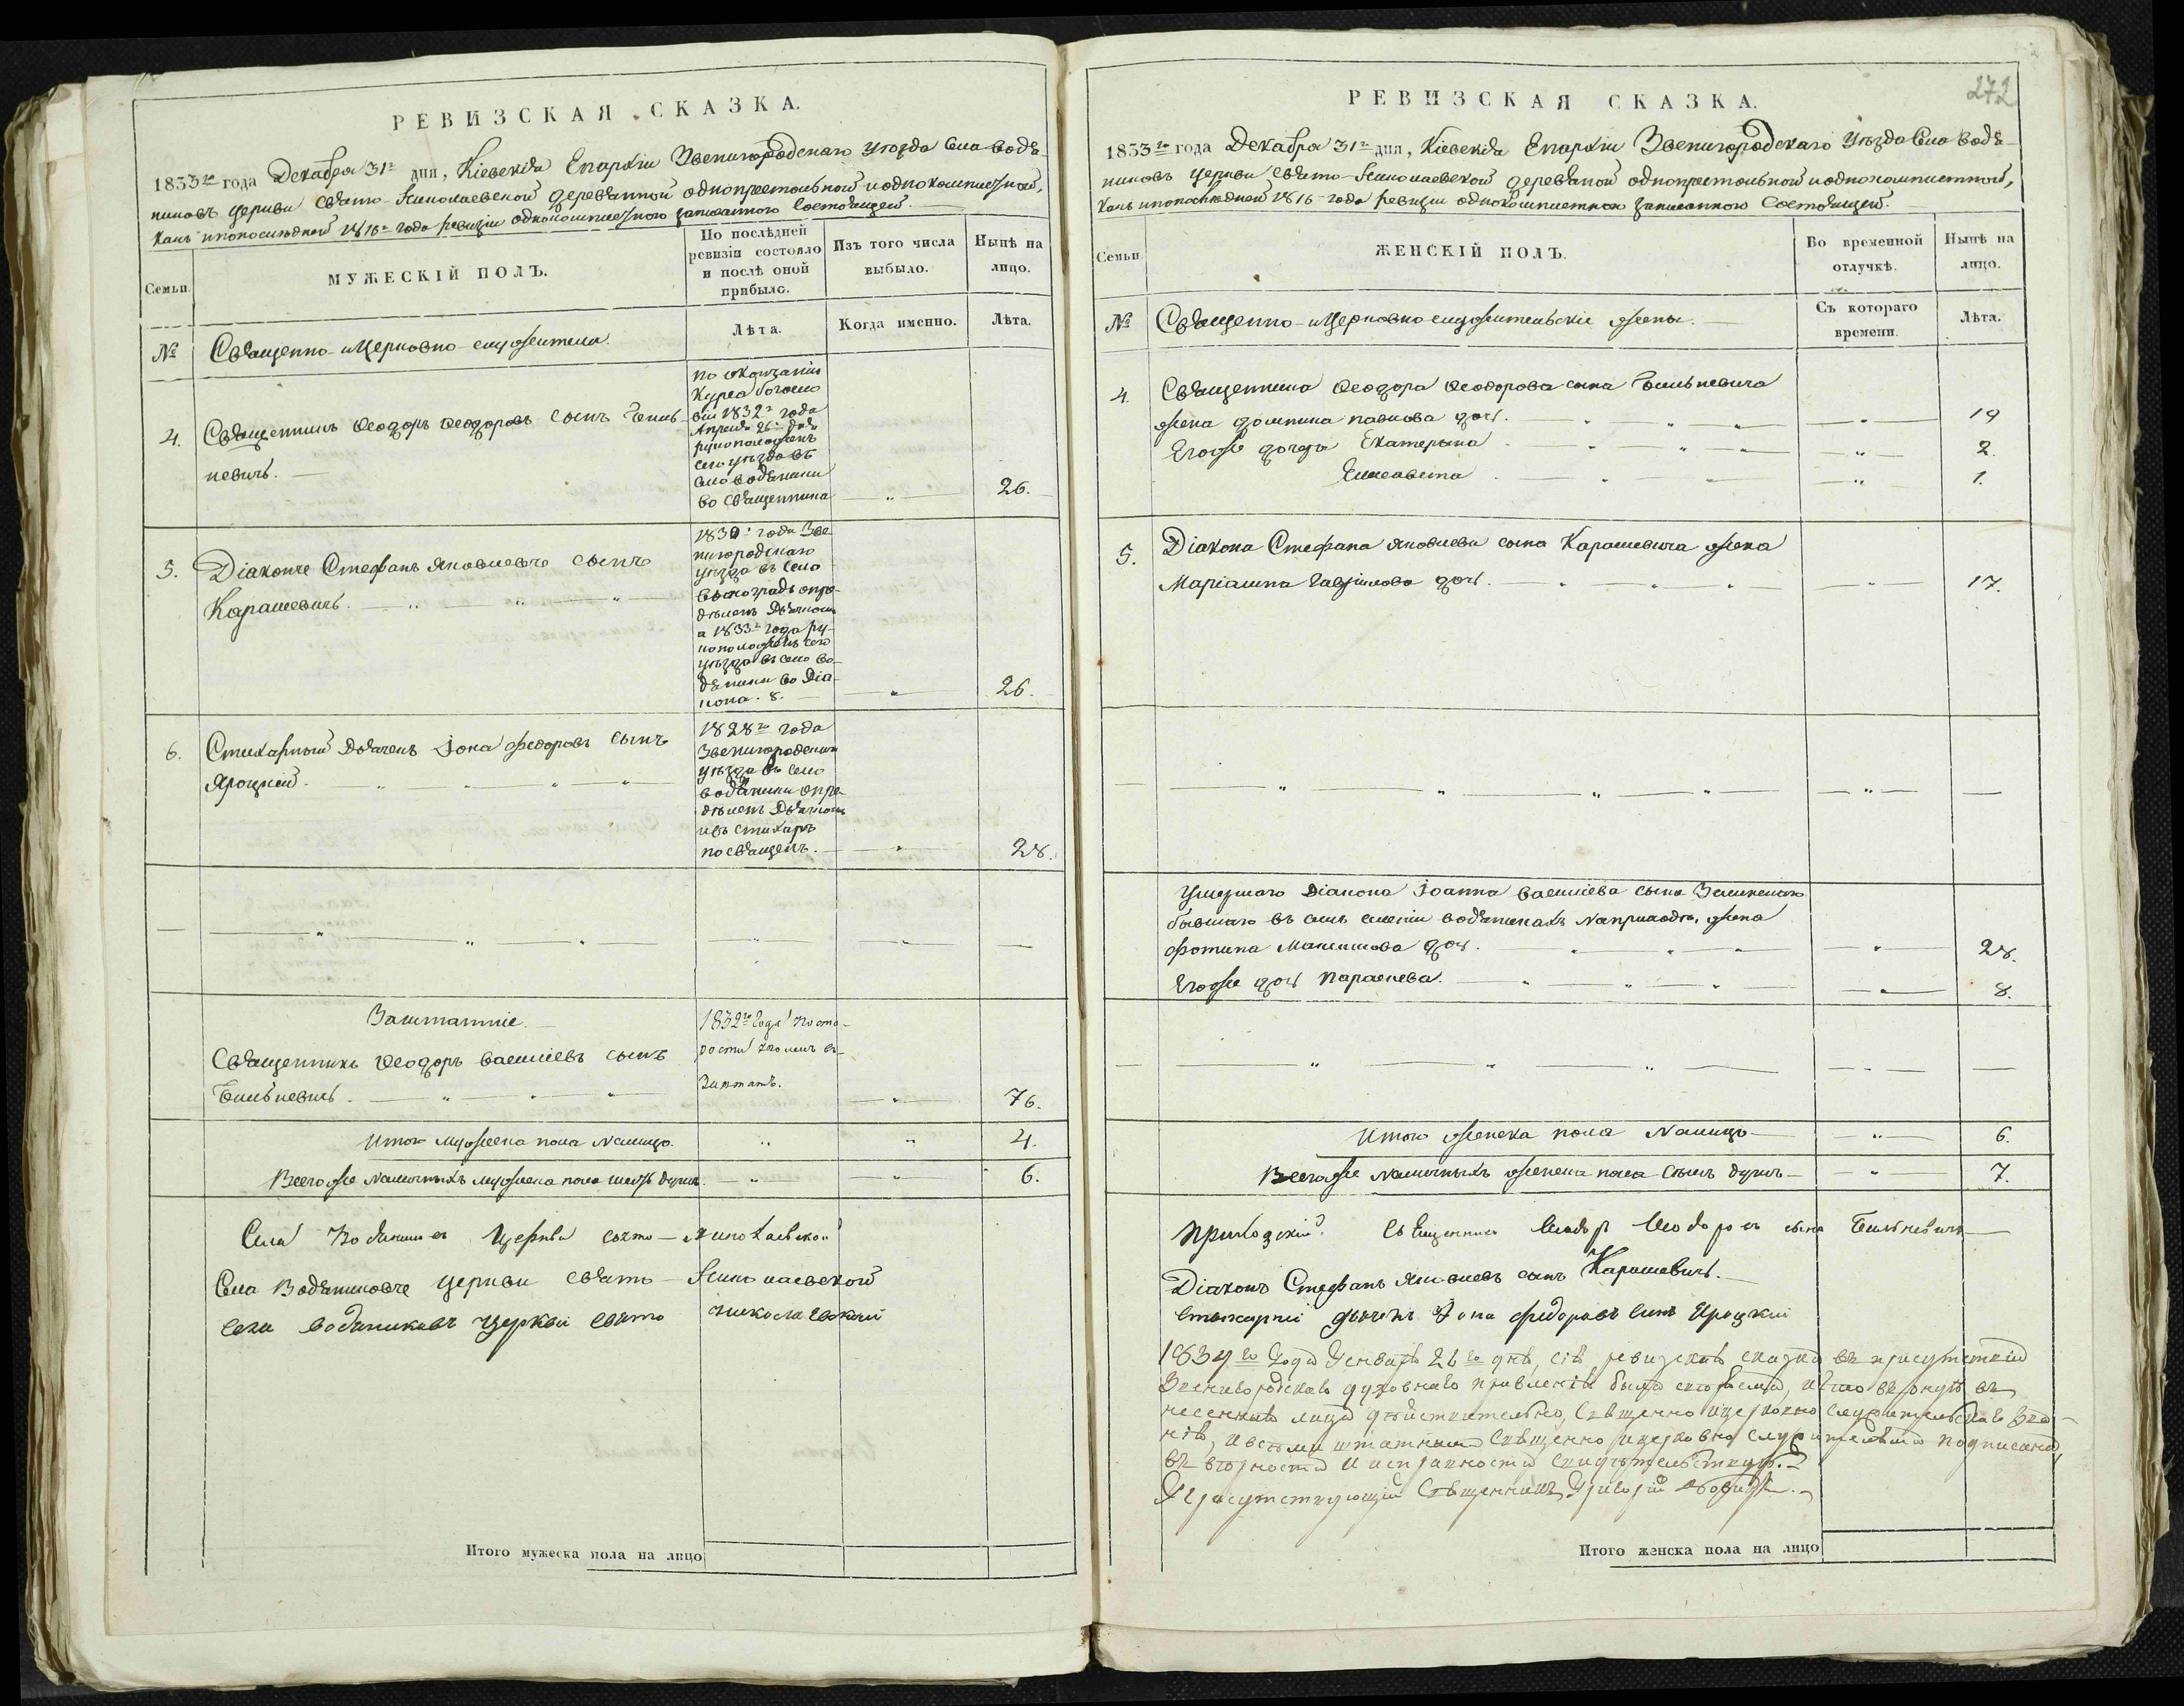 РЕВИЗСКАЯ СКАЗКА.
1833го года Декабря 31го дня, Кіевскія Епархіи Звенигородскаго Уѣзда Села Водя-
никовъ Церкви Свято-Николаевской деревянной однопрестольной и однокомплетной,
какъ и по послѣдней 1816го года ревизіи однокомплетною записанною Состоящей.
Семьи.
МУЖЕСКІЙ ПОЛЪ.
По послѣдней
ревизіи состояло
и послѣ оной
прибыло.
Изъ того числа
выбыло.
Нынѣ на
лицо.
№
Священно-и Церковно-служители.
Лѣта.
Когда именно.
Лѣта.
4.
Священникъ Ѳеодоръ Ѳеодоровъ сынъ Биль-
невичъ.
по окончаніи
Курса богосло
віи 1832го года
Апреля 26го дня
рукоположенъ
сего уѣзда въ
село Водяники
во Священника
26.
5.
Діаконъ Стефанъ Яковлевъ сынъ
Карашевичъ.
1830го года Зве-
нигородскаго
уѣзда въ село
Виноградъ опре-
дѣленъ Дьячкомъ
а 1833го года ру-
коположенъ сего
уѣзда въ село Во-
дяники во Діа-
кона. 8.
26.
6.
Стихарный Дьячекъ Іона Федоровъ сынъ
Яроцкій.
1828го года
Звенигородскаго
уѣзда въ село
Водяники опре-
дѣленъ Дьячкомъ
и въ стихарь
посвященъ.
28.
Заштатніе.
Священникъ Ѳеодоръ Василіевъ сынъ
Бильневичъ.
1832го Года по ста-
рости уволенъ въ
Заштатъ.
76.
Итого мужеска пола на лицо.
4.
Всего же наличныхъ мужеска пола шесть душъ.
6.
Села Водяниковъ Церкви Свято-Николаевской
Села Водяниковъ Церкви Свято-Николаевской
Села Водяниковъ Церкви Свято Николаевской
Итого мужеска пола на лицо
272
РЕВИЗСКАЯ СКАЗКА.
1833го года Декабря 31го дня, Кіевскія Епархіи Звенигородскаго Уѣзда Села Водя-
никовъ Церкви Свято-Николаевской деревяной однопрестольной и однокомплетной,
какъ и по послѣдней 1816го года ревизіи однокомплетною записанною Состоящей.
Семьи
ЖЕНСКІЙ ПОЛЪ.
Во временной
отлучкѣ.
Нынѣ на
лицо.
№
Священно-и Церковно служительскіе жены.
Съ котораго
времени.
Лѣта.
4.
Священника Ѳеодора Ѳеодорова сына Бильневича
жена Домника Павлова дочь.
19
Его же дочери Екатерина
2.
Елисавета
1.
5.
Діакона Стефана Яковлева сына Карашевича жена
Маріанна Гавріилова дочь.
17.
Умершаго Діакона Іоанна Василіева сына
бывшаго въ семъ селеніи Водяникахъ на приходѣ, жена
Фотина Максимова дочь.
28.
Его же дочь Параскева.
8.
Итого женска пола на лицо
6.
Всего же наличныхъ женска пола семь душъ
7.
Приходскій Священникъ Ѳеодоръ Ѳеодоровъ сынъ Бильневичъ
Діаконъ Стефанъ Яковлевъ сынъ Карашевичъ.
Стихарній дьячекъ Іона Федоровъ Синъ Яроцкій
1834го Года Генваря 26го дня, сія ревизская сказка въ присутствіи
Звенигородскаго духовнаго правленія была свѣряема, и что въ оную в
несенныя лица дѣйствительно, Священно и церковно служительскаго зва-
нія, и всѣми штатными Священно и церковно служителями подписана,
въ вѣрности и исправности свидѣтельствую.
Присутствующій Священникъ Григорій
Итого женска пола на лицо